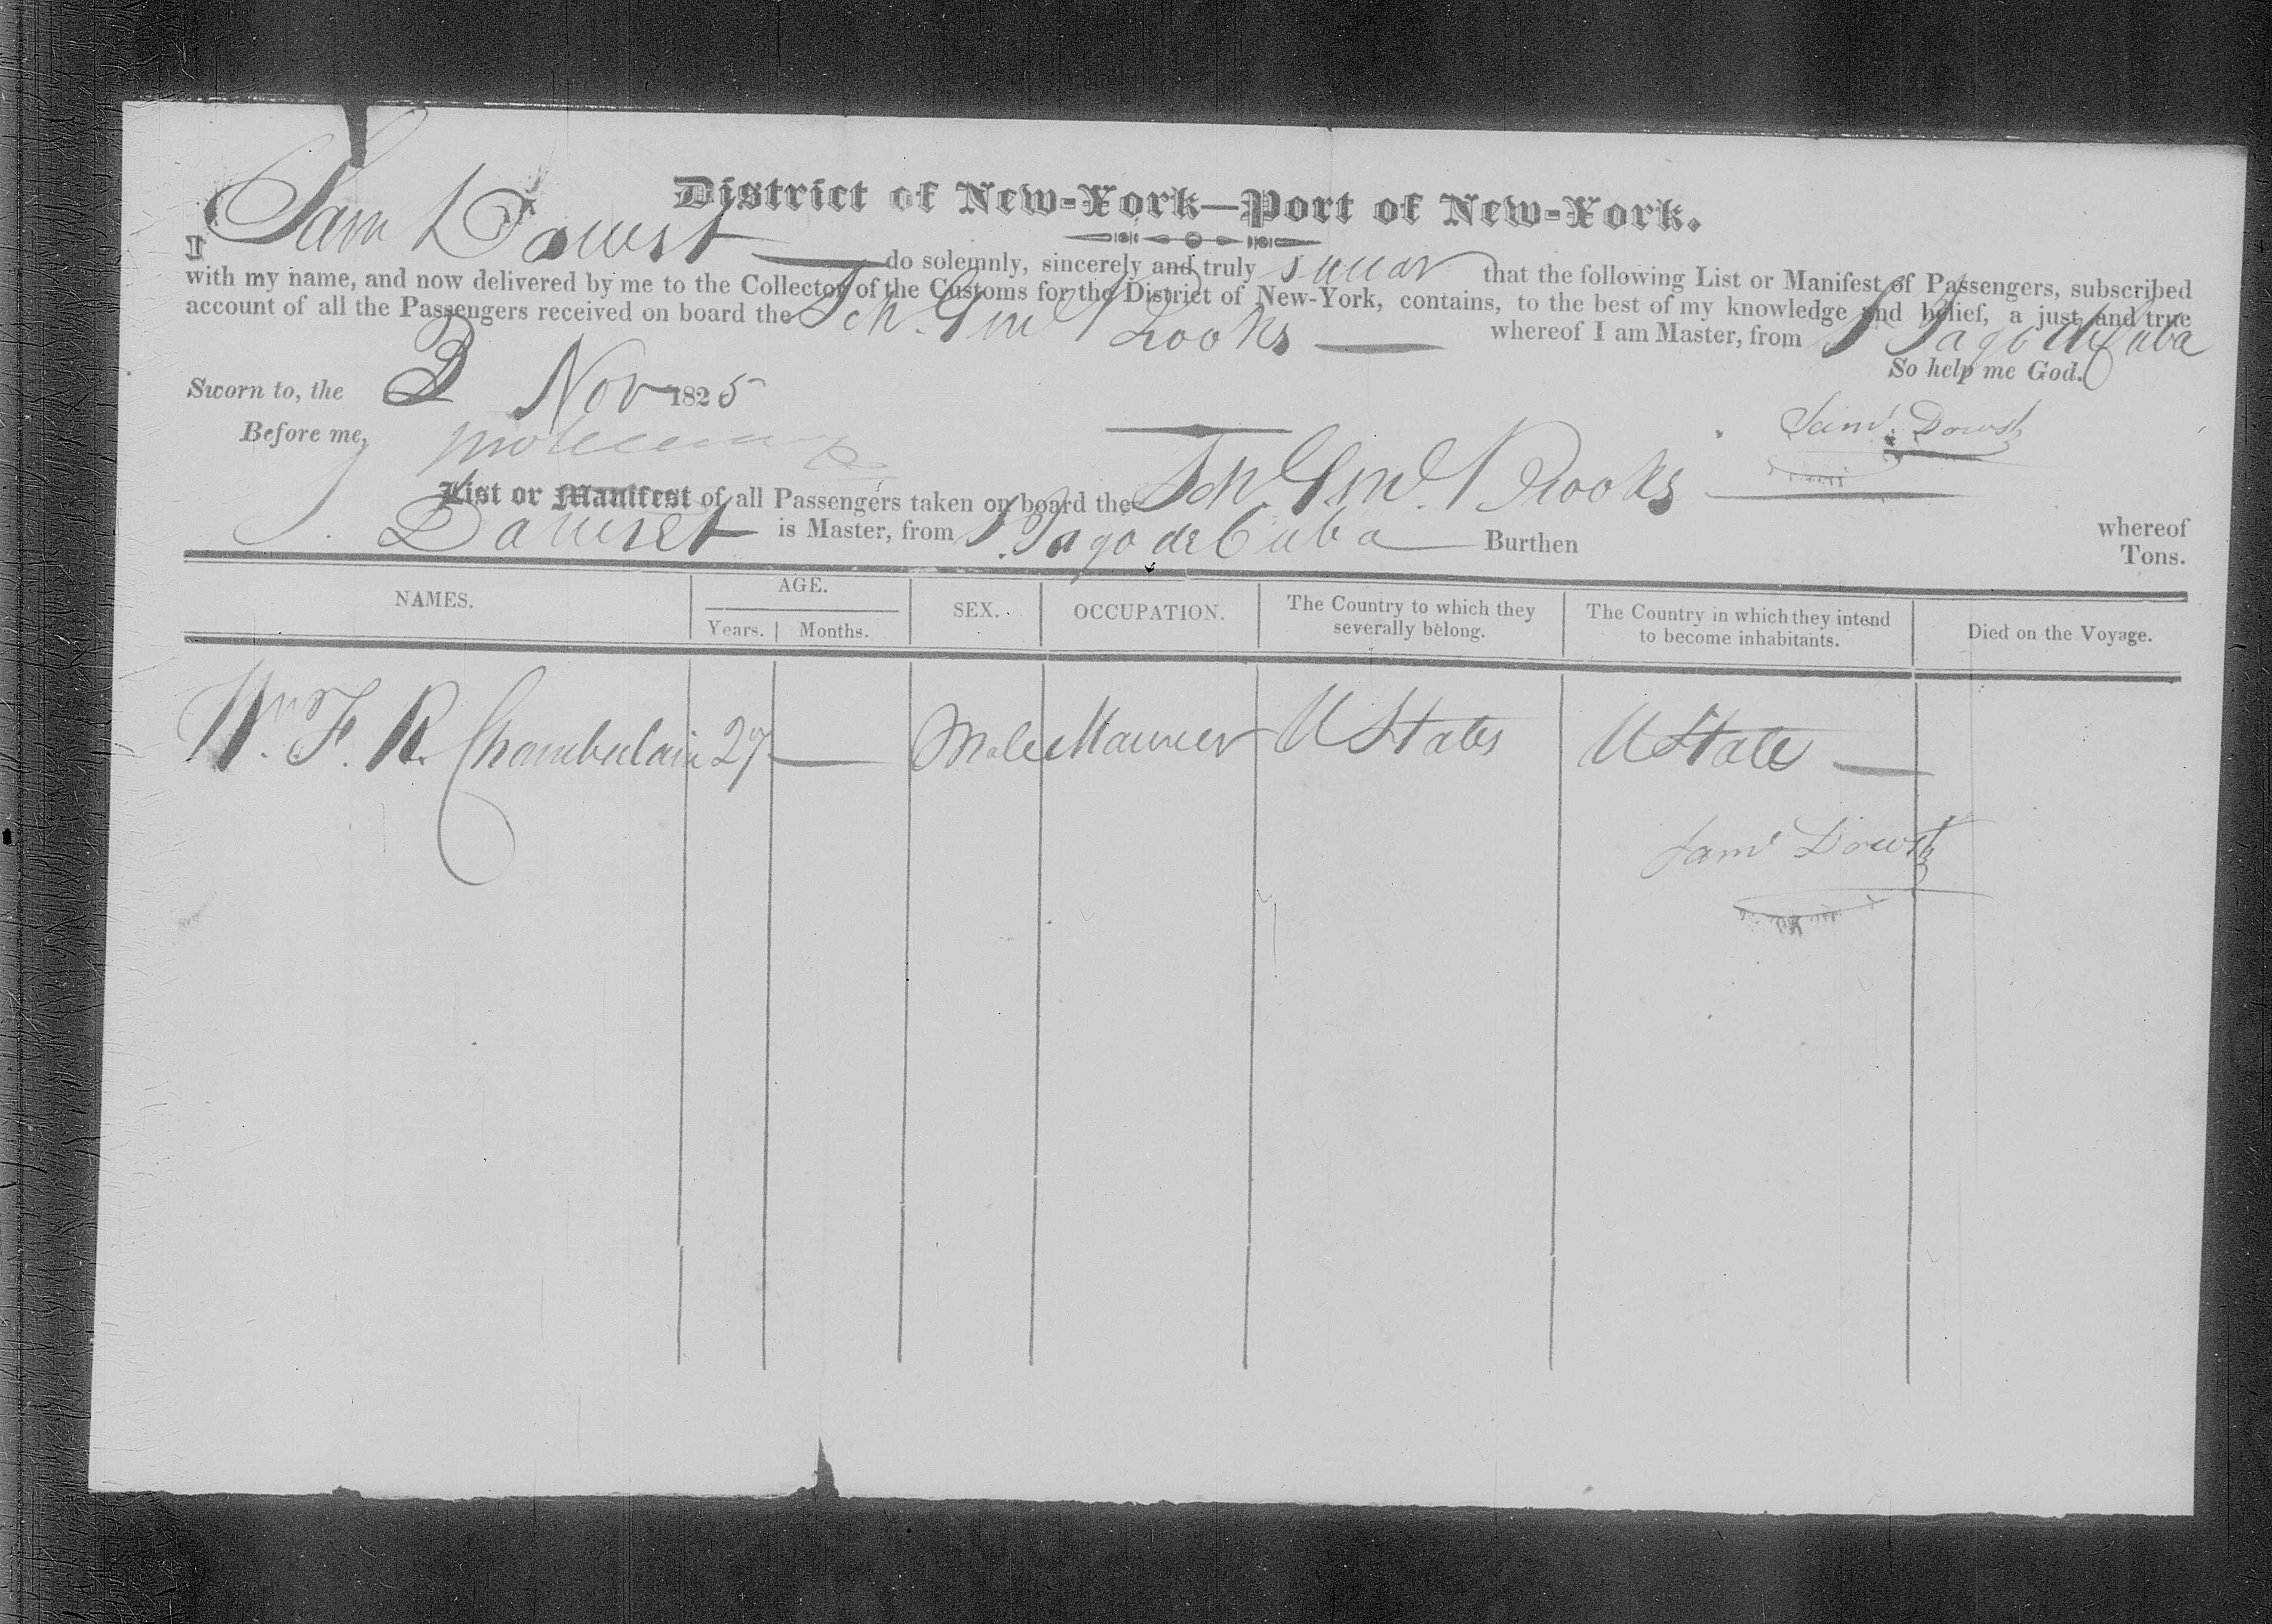 District of New-York—Port of New-York.
I Sam Dowst do solemnly, sincerely and truly swear that the following List or Manifest of Passengers, subscribed
with my name, and now delivered by me to the Collector of the Customs for the District of New-York, contains, to the best of my knowledge and belief, a just and true
account of all the Passengers received on board the Sch. Genl Brooks whereof I am Master, from St Jago de Cuba
So help me God.
Sworn to, the 3 Nov 1825
Saml. Dowst
Before me,
List or Manifest of all Passengers taken on board the Sch. Genl. Brooks whereof
is Master, from St Jago de Cuba Burthen Tons.
NAMES. AGE. SEX. OCCUPATION. The Country to which they severally belong. The Country in which they intend to become inhabitants. Died on the Voyage.
Years. Months.
Wm. F. R. Chamberlain 27 — Male Mariner U States U State —
Saml Dowst